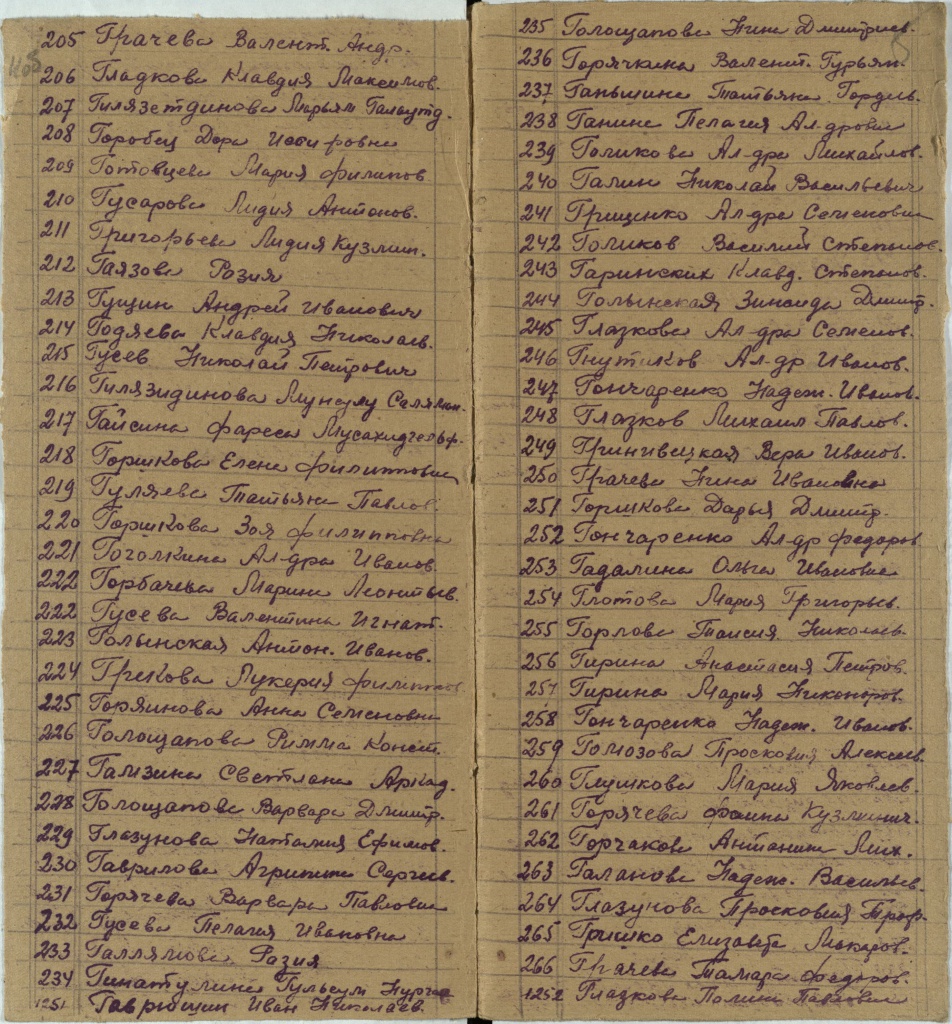 205 Грачева Валент. Андр.
206 Гладкова Клавдия Максимов.
207 Гилязетдинова Марьям Галаутд.
208 Горобец Дора Исетировна
209 Готовцева Мария Филипов
210 Гусарова Лидия Антонов.
211 Григорьева Лидия Кузмин.
212 Гаязова Розия
213 Гущин Андрей Иванович
214 Годяева Клавдия Николаев.
215 Гусев Николай Петрович
216 Гилязидинова Мунсулу Салямон.
217 Гайсина Фареса
218 Горшкова Елена Филипповна
219 Гуляева Татьяна Павлов.
220 Горшкова Зоя Филипповна
221 Гоголкина Ал-дра Иванов.
222 Горбачева Марина Леонтьев.
222 Гусева Валентина Игнат.
223 Голынская Антон. Иванов.
224 Грикова Лукерия Филиппов
225 Горяинова Анна Семеновна
226 Голощапова Римма Конст.
227 Гамзина Светлана Аркад.
228 Голощапова Варвара Дмитр.
229 Глазунова Наталия Ефимов.
230 Гаврилова Агрипин Сергеев.
231 Горячева Варвара Павловна
232 Гусева Пелагия Ивановна
233 Галлямова Разия
234 Гинатулина Гульсум Нургае
1251 Гаврющин Иван Николаев.
235 Голощапова Нина Дмитриев.
236 Горячкина Валент. Гурьян.
237 Ганьшина Татьяна Гордев.
238 Ганина Пелагия Ал-дровна
239 Голикова Ал-дра Михайлов.
240 Галин Николай Васильевич
241 Грищенко Ал-дра Семеновна
242 Голиков Василий Степанов.
243 Гаринских Клавд. Степанов.
244 Голынская Зинаида Дмитр.
245 Глазкова Ал-дра Семенов.
246 Гнутиков Ал-др Иванов.
247 Гончаренко Надеж. Иванов.
248 Глазков Михаил Павлов.
249 Гринивецкая Вера Иванов.
250 Грачева Нина Ивановна
251 Горшкова Дарья Дмитр.
252 Гончаренко Ал-др Федоров
253 Гадалина Ольга Ивановна
254 Глотова Мария Григорьев.
255 Горлова Таисия Николаев.
256 Гирина Анастасия Петров.
257 Гирина Мария Никоноров.
258 Гончаренко Надеж. Иванов.
259 Гомозова Просковия Алексеев.
260 Глушкова Мария Яковлев.
261 Горячева Фаина Кузминич.
262 Горчакова Антанина Мих.
263 Галанова Надеж. Васильев.
264 Глазунова Просковия Троф.
265 Гришко Елизавета Макаров.
266 Грачева Тамара Федоров.
1252 Глазкова Полина Павловна